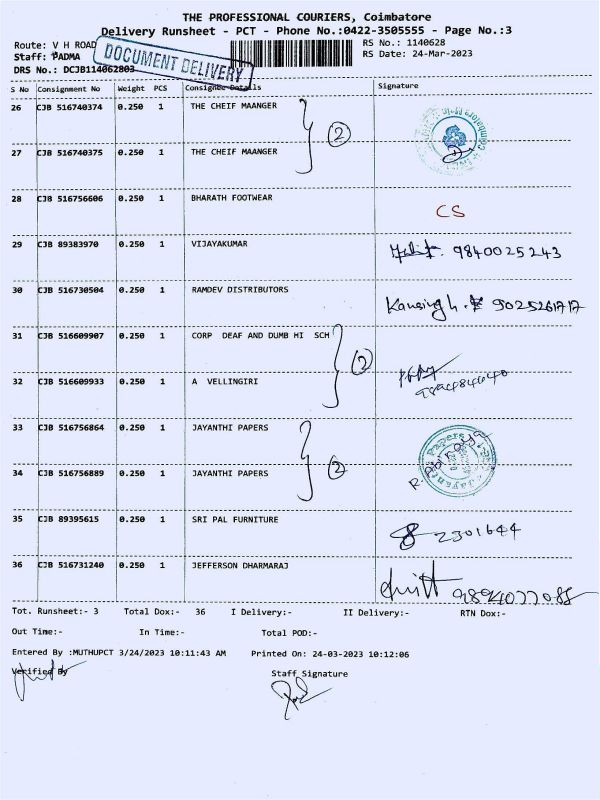 THE PROFESSIONAL COURIERS, Coimbatore
Delivery Runsheet - PCT - Phone No.:0422-3505555 - Page No.:3
Route: V H ROAD
RS No.: 1140628
Staff: PADMA
RS Date: 24-Mar-2023
DRS No.: DCJB114062803
DOCUMENT DELIVERY
S No Consignment No Weight PCS Consignee Details Signature
26 CJB 516740374 0.250 1 THE CHEIF MAANGER
2
27 CJB 516740375 0.250 1 THE CHEIF MAANGER
28 CJB 516756606 0.250 1 BHARATH FOOTWEAR
CS
29 CJB 89383970 0.250 1 VIJAYAKUMAR
9840025243
30 CJB 516730504 0.250 1 RAMDEV DISTRIBUTORS
9025261717
31 CJB 516609907 0.250 1 CORP DEAF AND DUMB HI SCH
2
32 CJB 516609933 0.250 1 A VELLINGIRI
33 CJB 516756864 0.250 1 JAYANTHI PAPERS
2
34 CJB 516756889 0.250 1 JAYANTHI PAPERS
R. Abinaya
35 CJB 89395615 0.250 1 SRI PAL FURNITURE
2301644
36 CJB 516731240 0.250 1 JEFFERSON DHARMARAJ
Tot. Runsheet:- 3 Total Dox:- 36 I Delivery:- II Delivery:- RTN Dox:-
Out Time:- In Time:- Total POD:-
Entered By :MUTHUPCT 3/24/2023 10:11:43 AM Printed On: 24-03-2023 10:12:06
Verified By Staff Signature